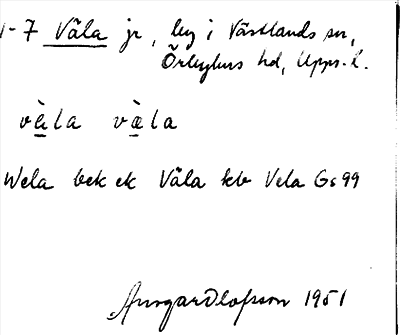 1-7 Väla jr, by i Västlands sn,
Örbyhus hd, Upps. l.
vèla vàla
Wela bek ek Väla kb Vela Gs 99
Ansgar Olofsson 1951